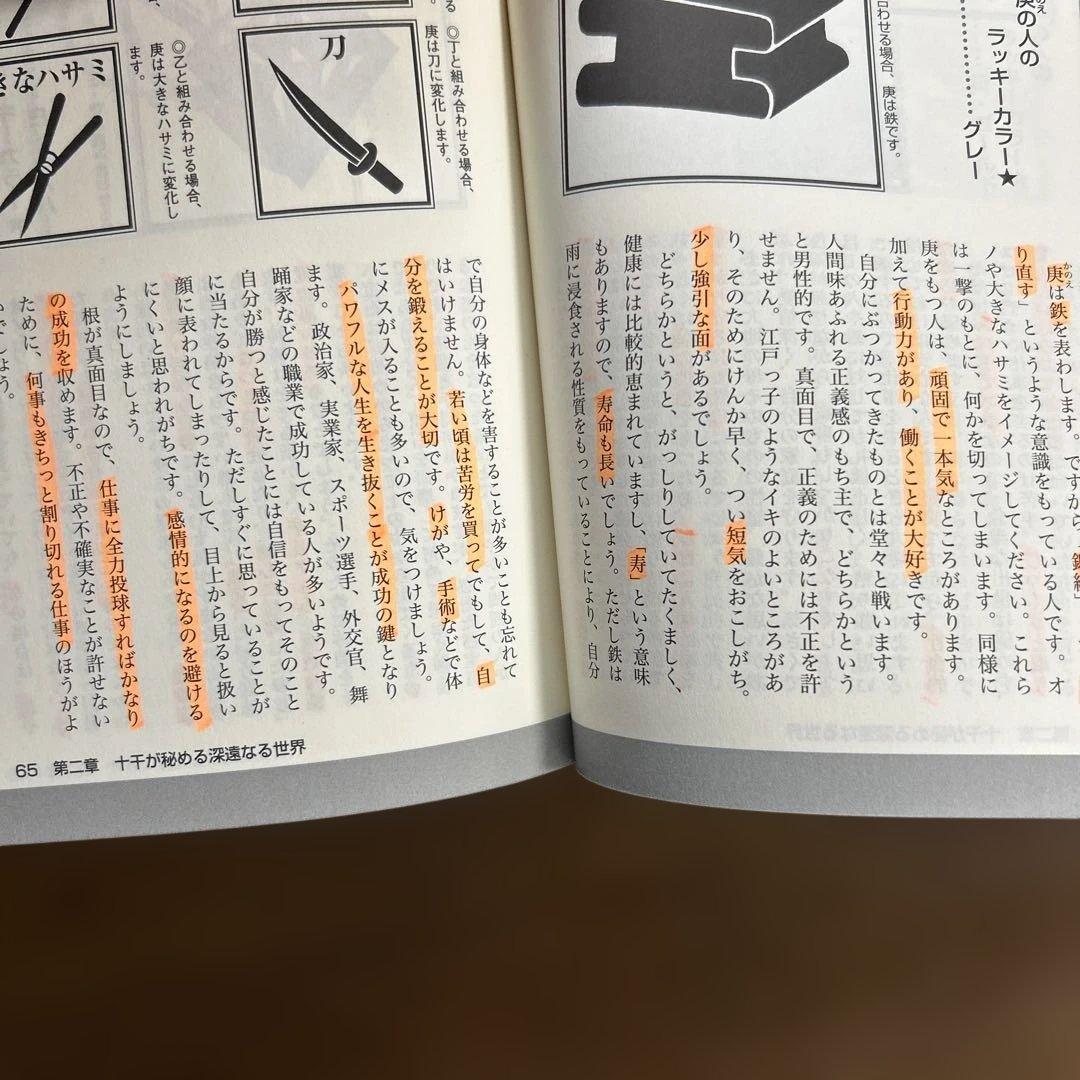 庚の人の
のえ
ラッキーカラー★
…………………グレー
合わせる場合、庚は鉄です。
庚は鉄を表わします。ですから、「鍛錬」
かのえ
り直す」というような意識をもっている人です。オ
ノや大きなハサミをイメージしてください。これら
は一撃のもとに、何かを切ってしまいます。同様に
庚をもつ人は、頑固で一本気なところがあります。
加えて行動力があり、働くことが大好きです。
自分にぶつかってきたものとは堂々と戦います。
人間味あふれる正義感のもち主で、どちらかという
と男性的です。真面目で、正義のためには不正を許
せません。江戸っ子のようなイキのよいところがあ
り、そのためにけんか早く、つい短気をおこしがち。
少し強引な面があるでしょう。
どちらかというと、がっしりしていてたくましく、
健康には比較的恵まれていますし、「寿」という意味
もありますので、寿命も長いでしょう。ただし鉄は
雨に浸食される性質をもっていることにより、自分
る
◎丁と組み合わせる場合、
庚は刀に変化します。
刀
◎乙と組み合わせる場合、
庚は大きなハサミに変化し
ます。
きなハサミ
で自分の身体などを害することが多いことも忘れて
はいけません。若い頃は苦労を買ってでもして、自
分を鍛えることが大切です。けがや、手術などで体
にメスが入ることも多いので、気をつけましょう。
パワフルな人生を生き抜くことが成功の鍵となり
ます。政治家、実業家、スポーツ選手、外交官、舞
踊家などの職業で成功している人が多いようです。
自分が勝つと感じたことには自信をもってそのこと
に当たるからです。ただしすぐに思っていることが
顔に表われてしまったりして、目上から見ると扱い
にくいと思われがちです。感情的になるのを避ける
ようにしましょう。
根が真面目なので、仕事に全力投球すればかなり
の成功を収めます。不正や不確実なことが許せない
ために、何事もきちっと割り切れる仕事のほうがよ
いでしょう。
65 第二章 十干が秘める深遠なる世界